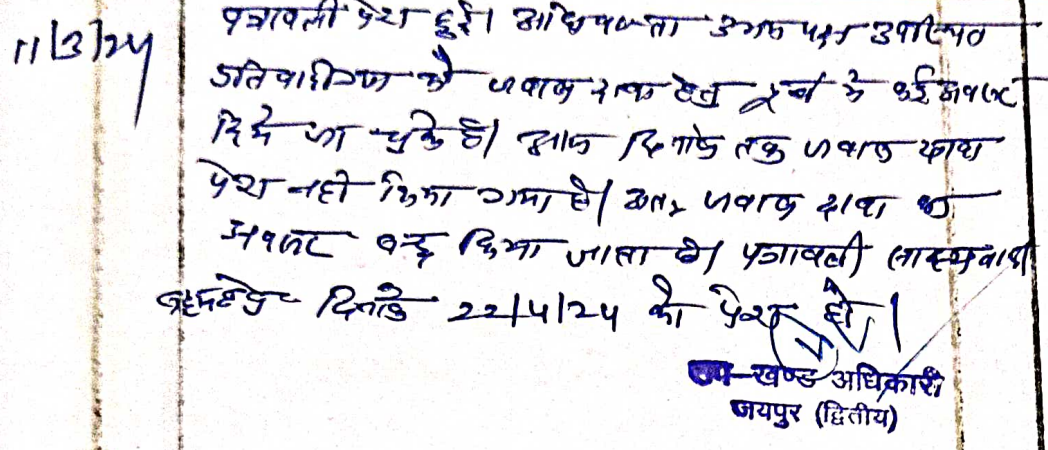 11/3/24
पत्रावली पेश हुई। अधिवक्ता उभय पक्ष उपस्थित
प्रतिवादीगण को जवाब दावा हेतु पूर्व में कई अवसर
दिये जा चुके है। आज दिनांक तक जवाब दावा
पेश नही किया गया है। अतः जवाब दावा का
अवसर बन्द किया जाता है। पत्रावली साक्ष्य वादी
हेतु दिनांक 22/4/24 को पेश हो।
उप-खण्ड अधिकारी
जयपुर (द्वितीय)